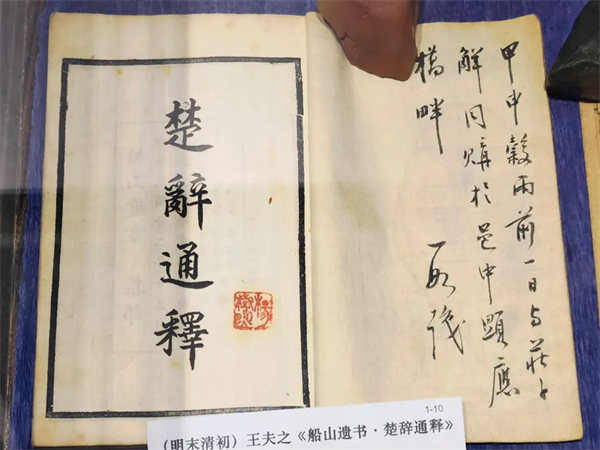 楚辭通釋
甲申穀雨前一日与莊子
解同購於邑中顯應
橋畔
1-10
（明末清初）王夫之《船山遗书·楚辞通释》